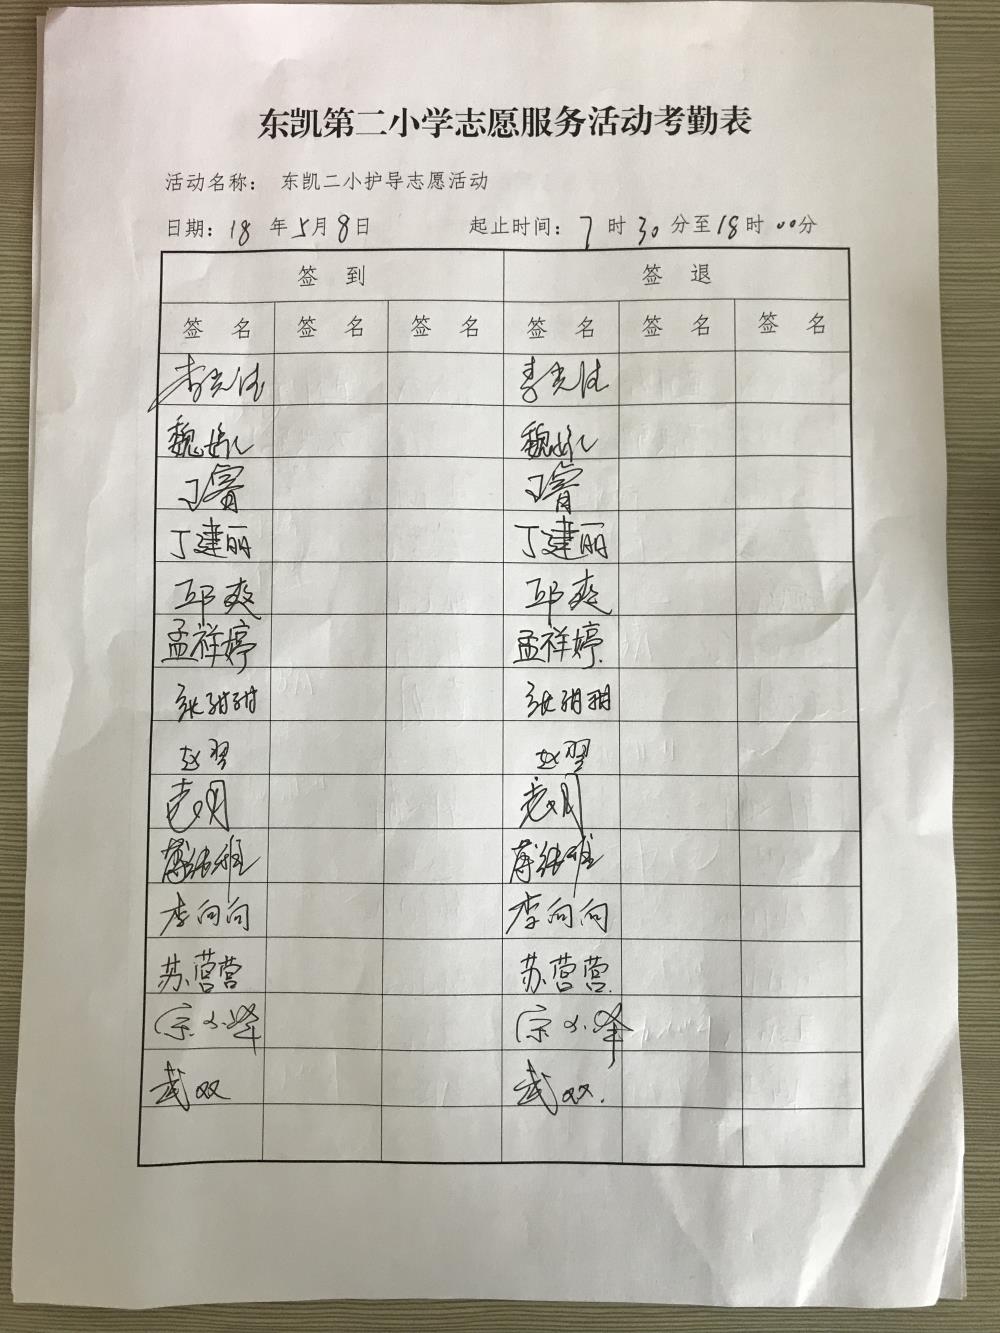 东凯第二小学志愿服务活动考勤表
活动名称： 东凯二小护导志愿活动
日期：18 年 5月 8日 起止时间：7 时 30 分至 18 时 00分
签 到 签 退
签 名 签 名 签 名 签 名 签 名 签 名
李 李
魏 魏
丁睿 丁睿
丁建丽 丁建丽
邱爽 邱爽
孟祥婷 孟祥婷.
张甜甜 张甜甜
赵翠 赵翠
月 月
薛 薛
李向向 李向向
苏营营 苏营营.
宗小峰 宗小峰
武双 武双.